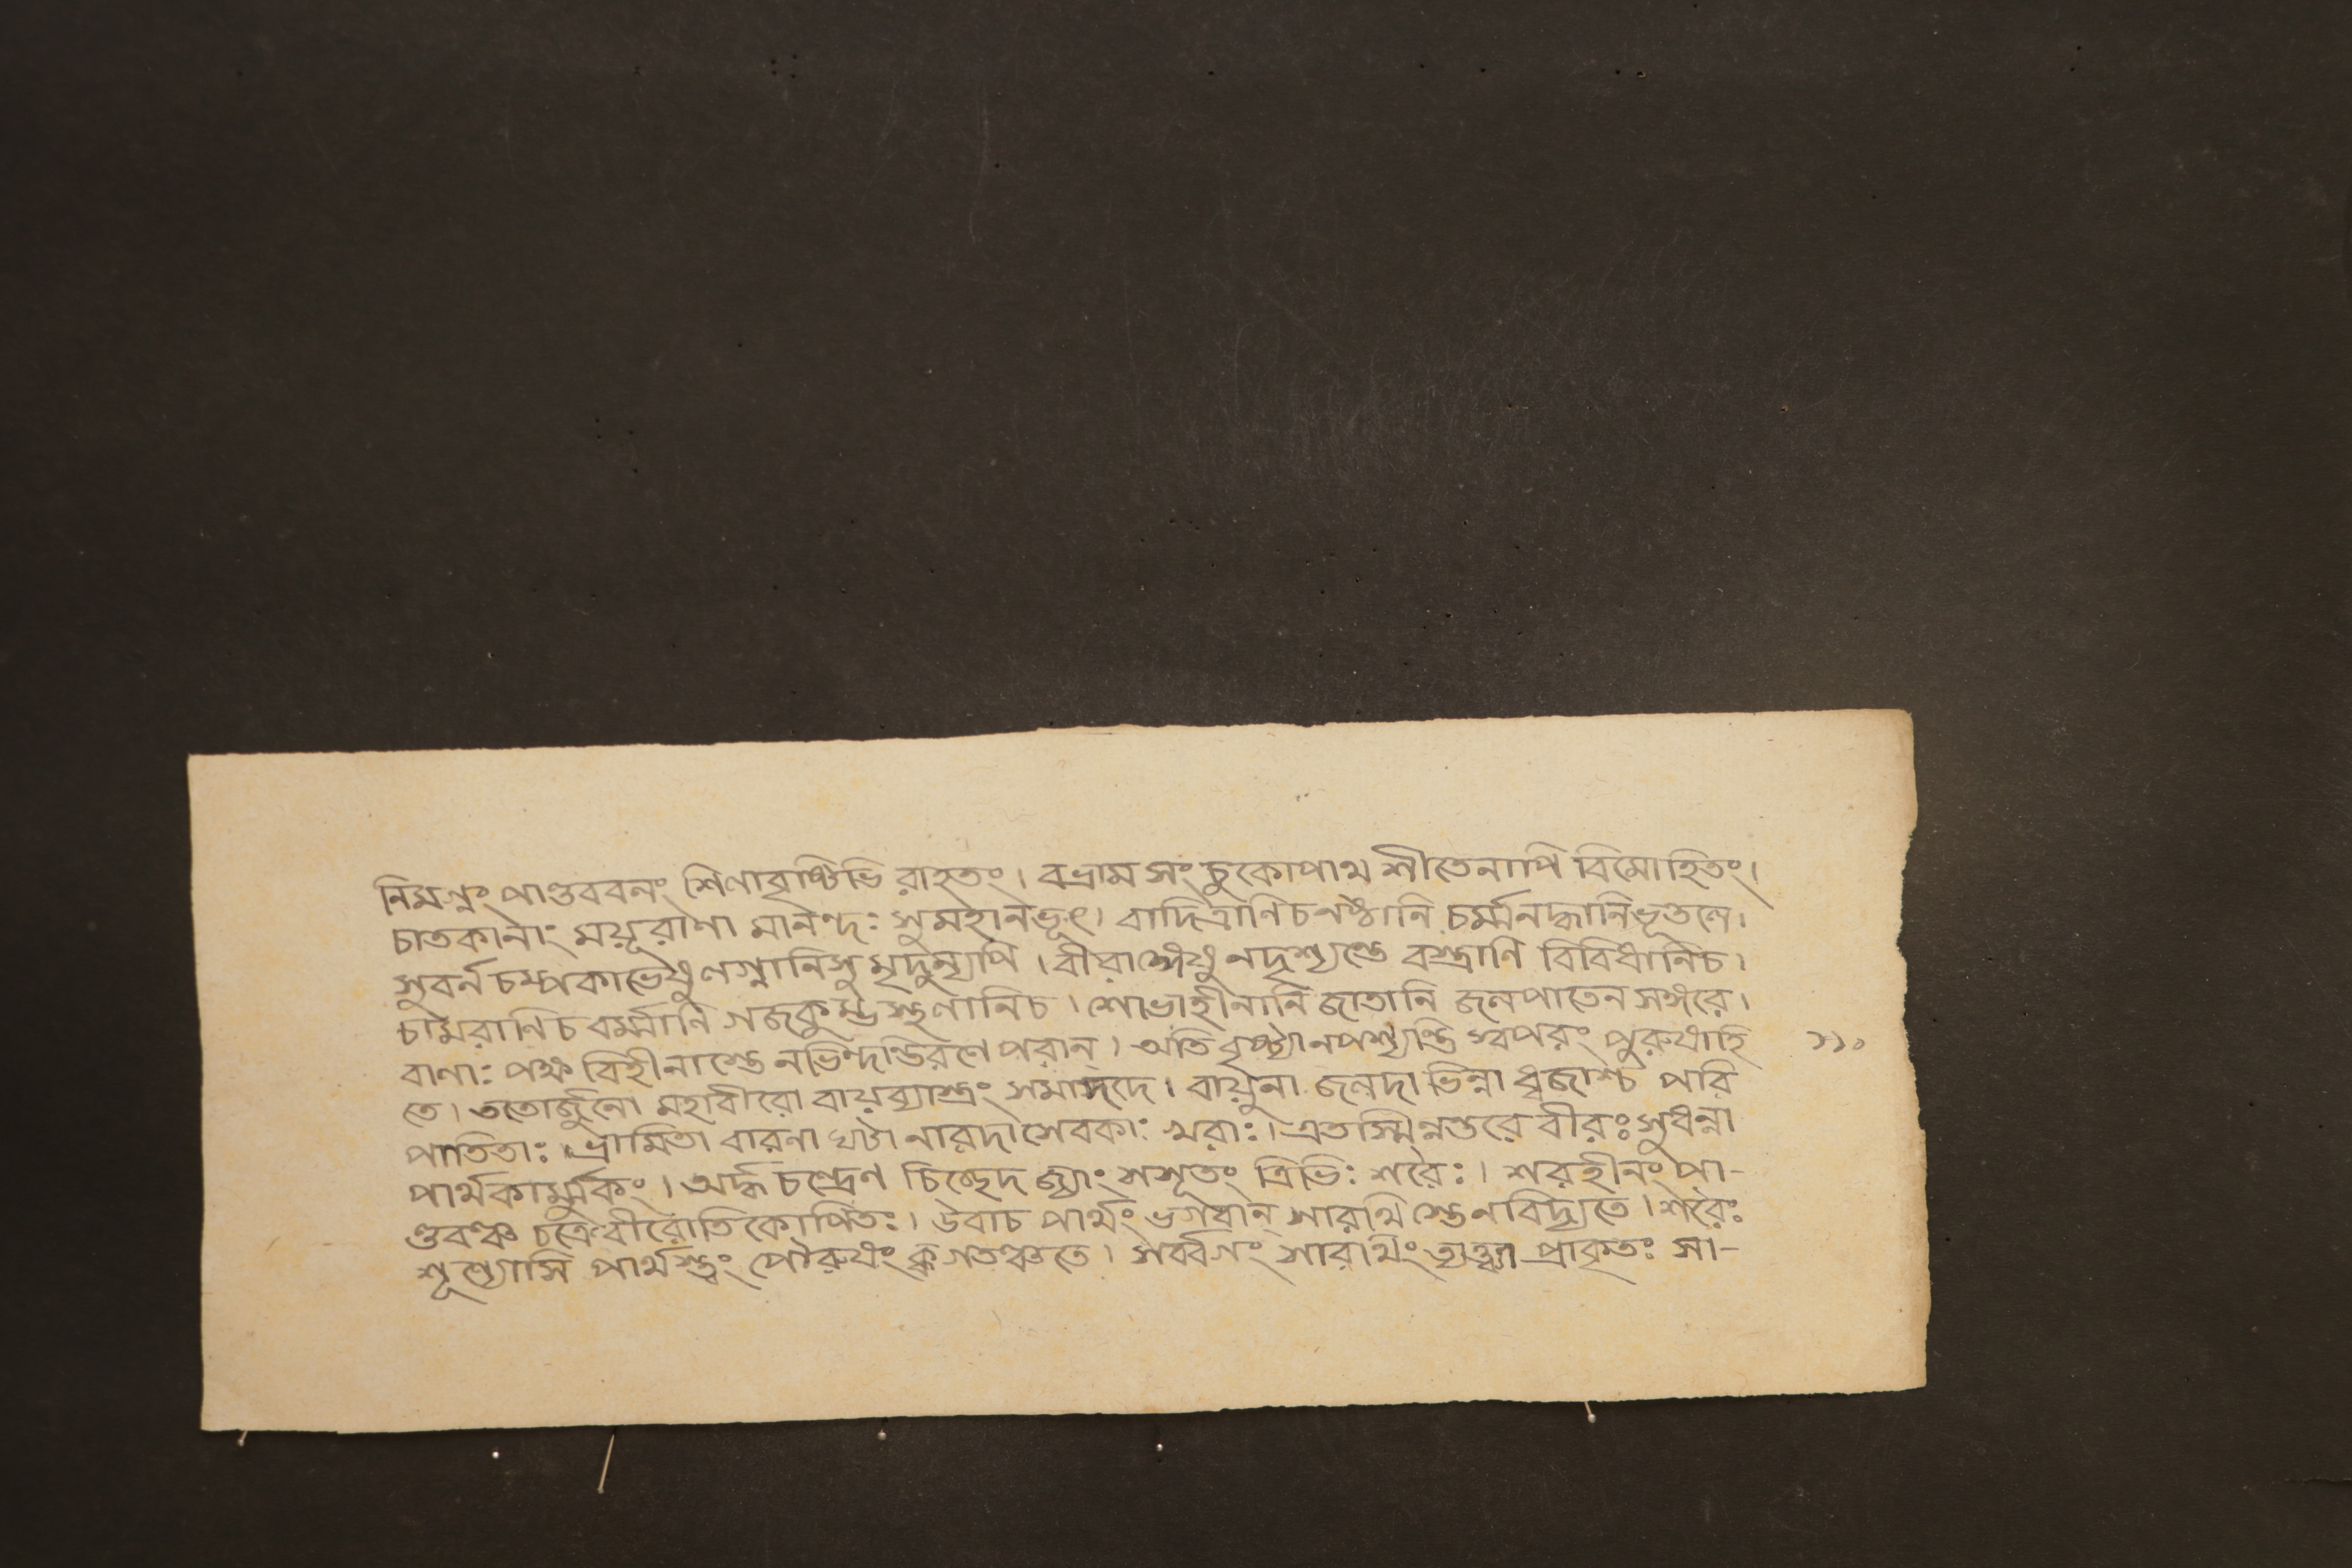 নিমগ্নং পাণ্ডববনং শিলাবৃষ্টিভি রাহতং। বভ্রাম সং চুকোপাথ শীতেনাপি বিমোহিতং।
চাতকানাং ময়ূরাণা মানন্দঃ সুমহানভূৎ। বাদিত্রাণিচনষ্টানি চর্ম্মনদ্ধানিভূতলে।
সুবর্ন চম্পকাভেষু লগ্নানিসু মৃদুন্যপি। বীরাঙ্গেষু নদৃশ্যন্তে বস্ত্রাণি বিবিধানিচ।
চামরাণিচ বর্ম্মাণি গজকুম্ভ স্থলানিচ। শোভাহীনানি জাতানি জলপাতেন সঙ্গরে।
বাণাঃ পক্ষ বিহীনাস্তে নভিন্দন্তিরণে পরান্। অতি বৃষ্ট্যানপশ্যন্তি স্বপরং পুরুষাহি ১১০
তে। ততোর্জুনো মহাবীরো বায়ব্যাস্ত্রং সমাদদে। বায়ুনা জলদা ভিন্না ধ্বজাশ্চ পরি
পাতিতাঃ। ভ্রামিতা বারনা ঘণ্টা নারদা সেবকাঃ খরাঃ। এতস্মিন্নন্তরে বীরঃ সুধন্বা
পার্থকার্ম্মুকং। অর্দ্ধ চন্দ্রেণ চিচ্ছেদ জ্যাং সসূতং ত্রিভিঃ শরৈঃ। শরহীনং পা-
ণ্ডবঞ্চ চক্রে বীরোতিকোপিতঃ। উবাচ পার্থং ভগবান্ সারথি স্তেনবিদ্যতে। শরৈঃ
শূন্যোসি পার্থস্ত্বং পৌরুষং ক্ব গতঞ্চতে। সর্ব্বগং সারথিং ত্যক্ত্বা প্রাকৃতঃ সা-